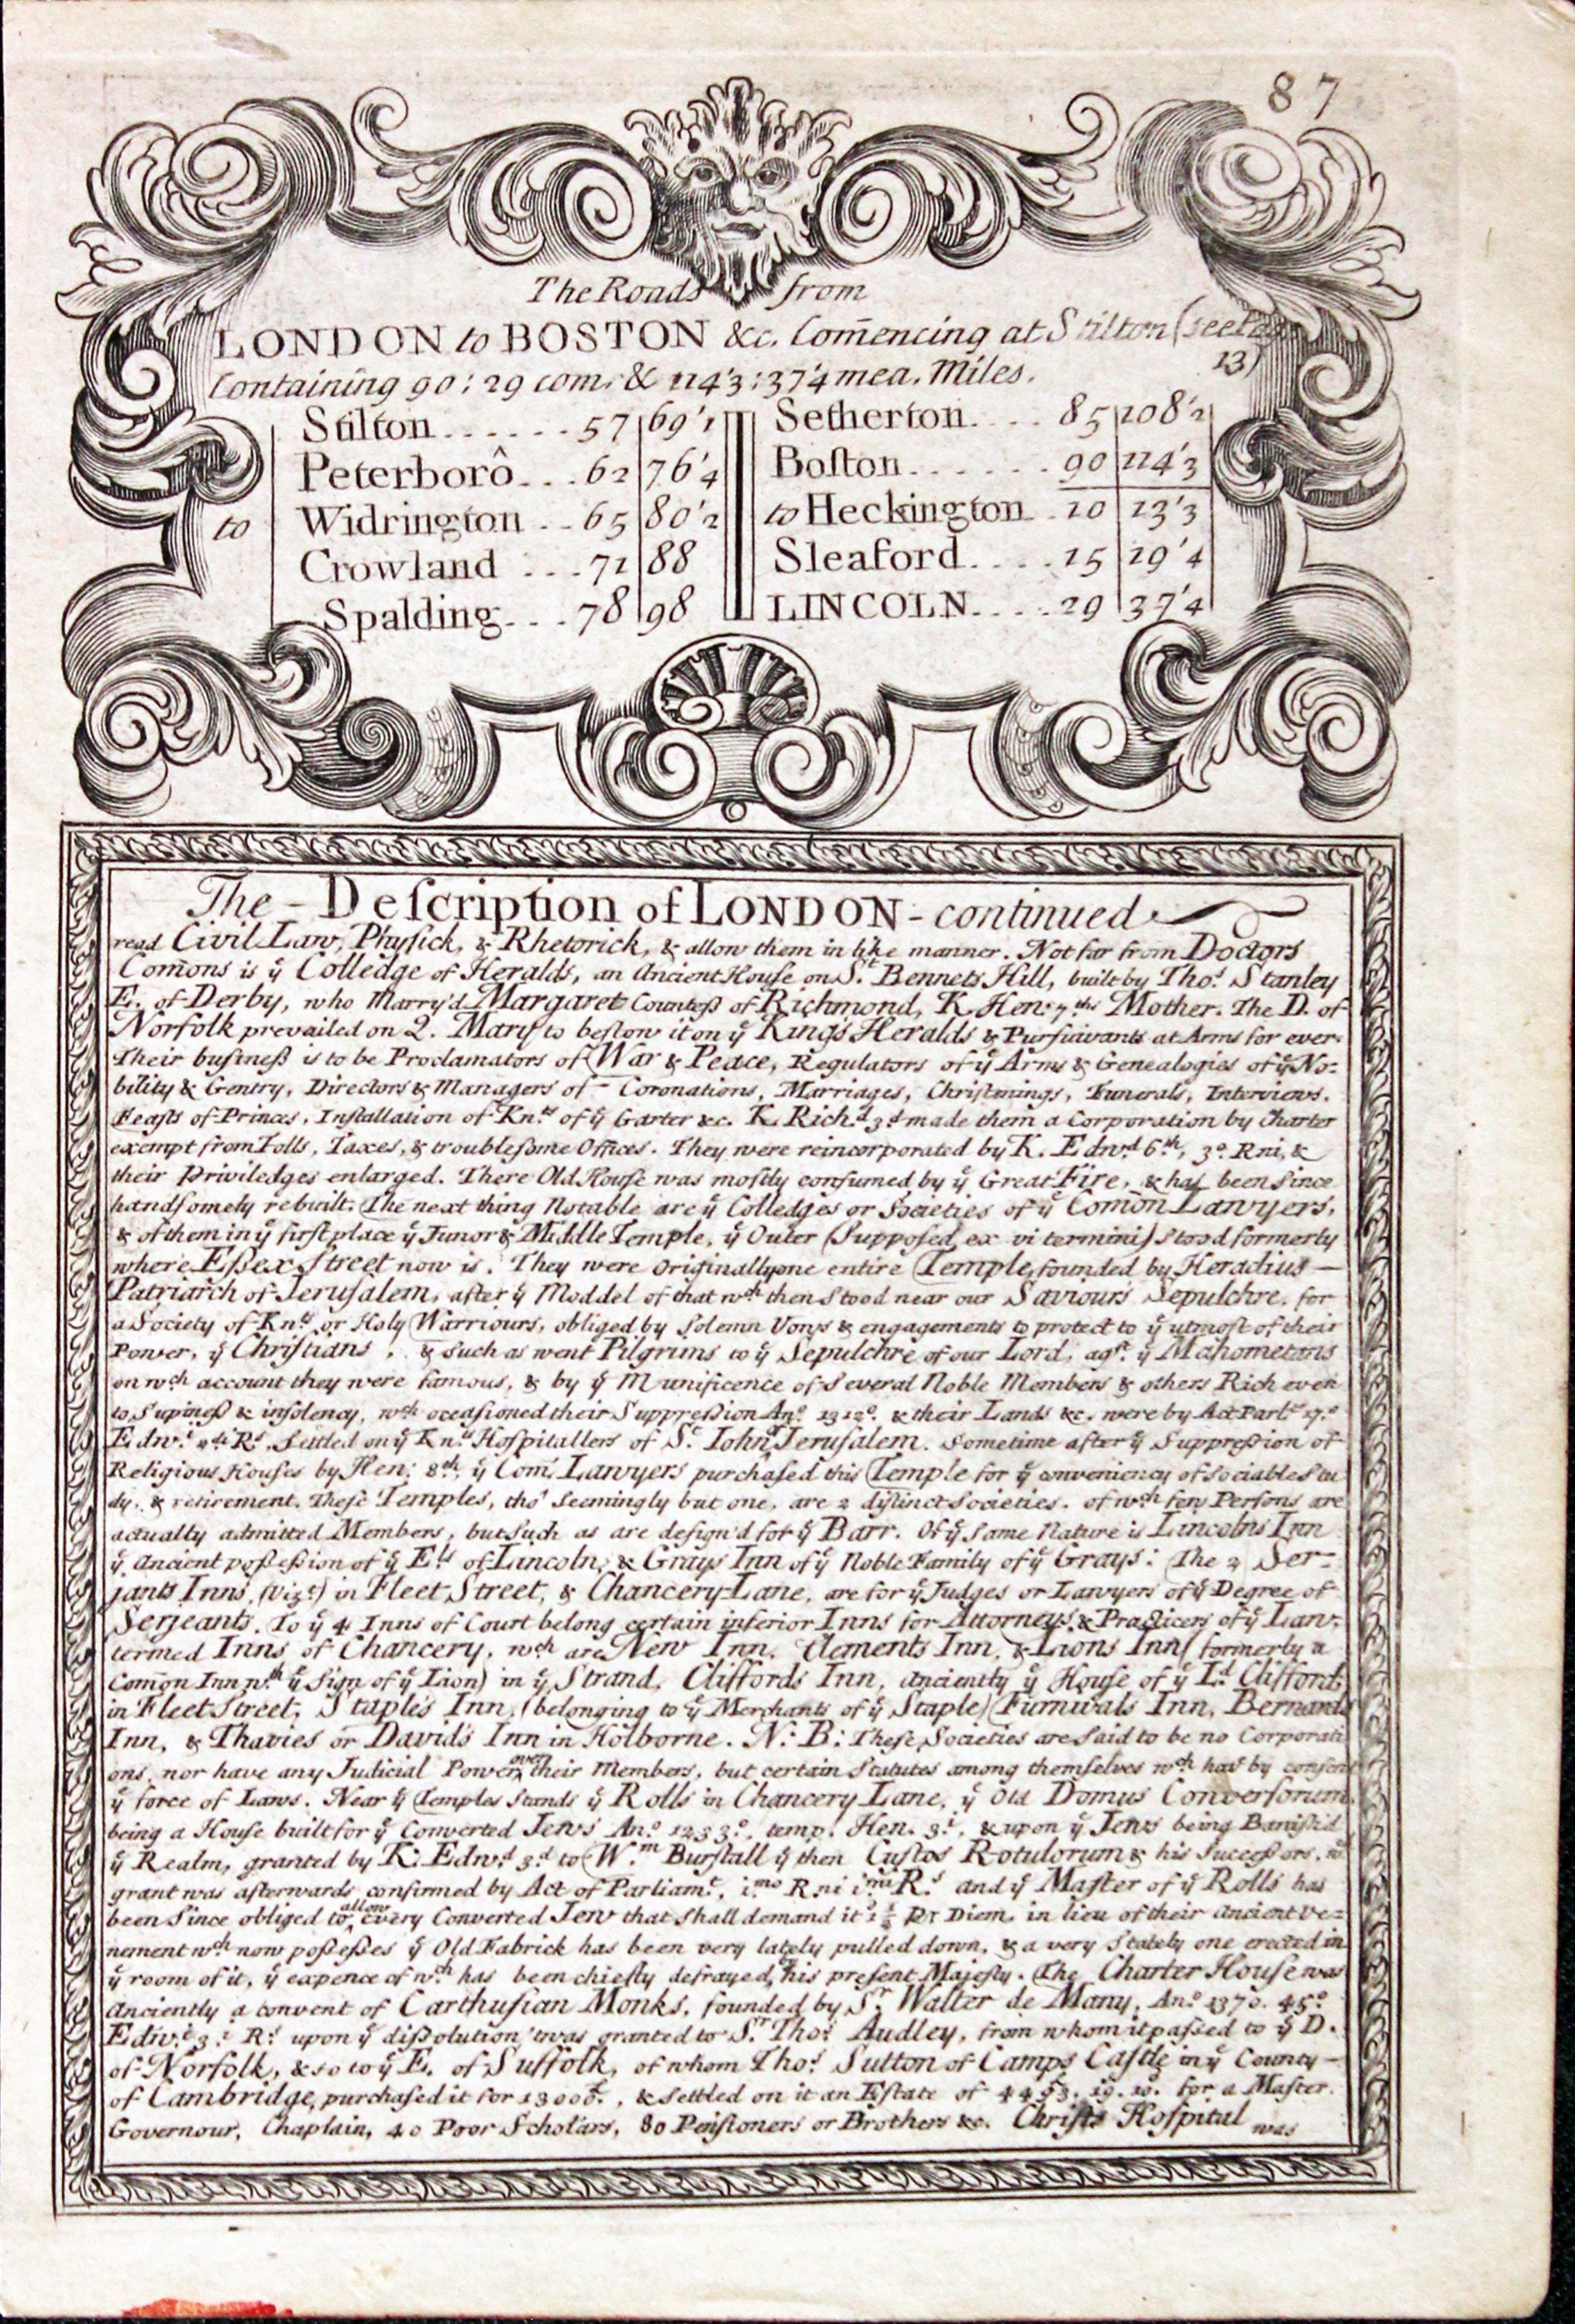 87
The Roads from
LONDON to BOSTON &c. Com̄encing at Stilton (see
13)
Containing 90 : 29 com. & 114'3 : 37'4 mea. Miles.
to
Stilton......57 69'1
Peterborô...62 76'4
Widrington..65 80'2
Crowland ...71 88
Spalding...78 98
Setherton....85 108'2
Boſton......90 114'3
to Heckington..10 13'3
Sleaford.....15 19'4
LINCOLN....29 37'4
The - Deſcription of LONDON - continued
read Civil Law, Phyſick, & Rhetorick, & allow them in like manner. Not far from Doctors
Com̄ons is ÿ Colledge of Heralds, an Ancient Houſe on St. Bennets Hill, built by Thos. Stanley
E. of Derby, who Marry'd Margaret Counteſs of Richmond, K. Hen: 7ths Mother. The D. of
Norfolk prevailed on Q. Mary to beſtow it on ÿ Kings Heralds & Purſuivants at Arms for ever.
Their buſineſs is to be Proclamators of War & Peace, Regulators of ÿ Arms & Genealogies of ÿ No:
bility & Gentry, Directors & Managers of - Coronations, Marriages, Chriſtnings, Funerals, Interviews.
Feaſts of Princes, Inſtallation of Knts. of ÿ Garter &c. K. Richd. 3d. made them a Corporation by Charter
exempt from Tolls, Taxes, & troubleſome Offices. They were reincorporated by K. Edwd. 6th, 3o. Rni, &
their Priviledges enlarged. There Old Houſe was moſtly conſumed by ÿ Great Fire, & has been Since
handſomely rebuilt. The next thing Notable are ÿ Colledges or Societies of ÿ Com̄on Lawyers,
& of them in ÿ firſt place ÿ Junor & Middle Temple, ÿ Outer (Suppoſed, ex vi termini) Stood formerly
where Eſsex Street now is. They were Originally one entire Temple, founded by Heradius —
Patriarch of Jeruſalem, after ÿ Moddel of that wch then Stood near our Saviours Sepulchre, for
a Society of Knts. or Holy Warriours, obliged by Solemn Vows & engagements to protect to ÿ utmoſt of their
Power, ÿ Chriſtians, & Such as went Pilgrims to ÿ Sepulchre of our Lord, agst. ÿ Mahometans
on wch account they were famous, & by ÿ Munificence of Several Noble Members & others Rich even
to Supineſs & inſolency, wch occaſioned their Suppreſsion Ano. 1312o. & their Lands &c. were by Act Parlt. 17.o
Edwd. Rs. Settled on ÿ Knts Hoſpitallers of St. Iohn Jeruſalem. Sometime after ÿ Suppreſsion of
Religious Houſes by Hen: 8th, ÿ Com: Lawyers purchaſed this Temple for ÿ conveniency of Sociable Stu
dy. & retirement. Theſe Temples, tho' Seemingly but one, are 2 diſtinct Societies. of wch few Perſons are
actually admitted Members, but Such as are deſign'd for ÿ Barr. Of ÿ Same Nature is Lincolns Inn
ÿ Ancient poſseſsion of ÿ Els of Lincoln, & Grays Inn of ÿ Noble Family of ÿ Grays: The 2 Ser-
jants Inns, (Vizt.) in Fleet Street, & Chancery Lane, are for ÿ Judges or Lawyers of ÿ Degree of
Serjeants. To ÿ 4 Inns of Court belong certain inferior Inns for Attorneys & Practicers of ÿ Law.
termed Inns of Chancery, wch are New Inn, Clements Inn, & Lions Inn (formerly a
Com̄on Inn wth ÿ Sign of ÿ Lion) in ÿ Strand, Cliffords Inn, anciently ÿ Houſe of ÿ Ld. Clifford
in Fleet Street, Staple's Inn, (belonging to ÿ Merchants of ÿ Staple) Furnivals Inn, Bernards
Inn, & Thavies or Davids Inn in Holborne. N: B: Theſe Societies are Said to be no Corporati
ons, nor have any Judicial Power over their Members, but certain Statutes among themſelves wch has by conſent
ÿ force of Laws. Near ÿ Temples Stands ÿ Rolls in Chancery Lane, ÿ Old Domus Converſorum
being a Houſe built for ÿ Converted Jews Ano. 1233o. temp. Hen. 3i. & upon ÿ Jews being Baniſh'd
ÿ Realm, granted by K. Edwd. 3d. to Wm. Burſtall ÿ then Cuſtos Rotulorum & his Succeſsors. wch
grant was afterwards confirmed by Act of Parliamt. imo Rni Rs. And ÿ Maſter of ÿ Rolls has
been Since obliged to allow every Converted Jew that Shall demand it Diem, in lieu of their Ancient Te=
nement wch now poſseſses ÿ Old Fabrick has been very lately pulled down, & a very Stately one erected in
ÿ room of it, ÿ expence of wch has been chiefly defrayed, by his preſent Majeſty. The Charter Houſe was
Anciently a convent of Carthuſian Monks, founded by Sr. Walter de Many, Ano. 1370. 45o
Edwd. 3i Rs. upon ÿ diſsolution, 'twas granted to Sr. Thos. Audley, from whom it paſsed to ÿ D.
of Norfolk, & so to ÿ E. of Suffolk, of whom Thos. Sutton of Camps Caſtle in ÿ County —
of Cambridge, purchaſed it for 13000£., & Settled on it an Eſtate of 4493. 19. 10. for a Maſter.
Governour, Chaplain, 40 Poor Scholars, 80 Penſioners or Brothers &c. Chriſts Hoſpital was